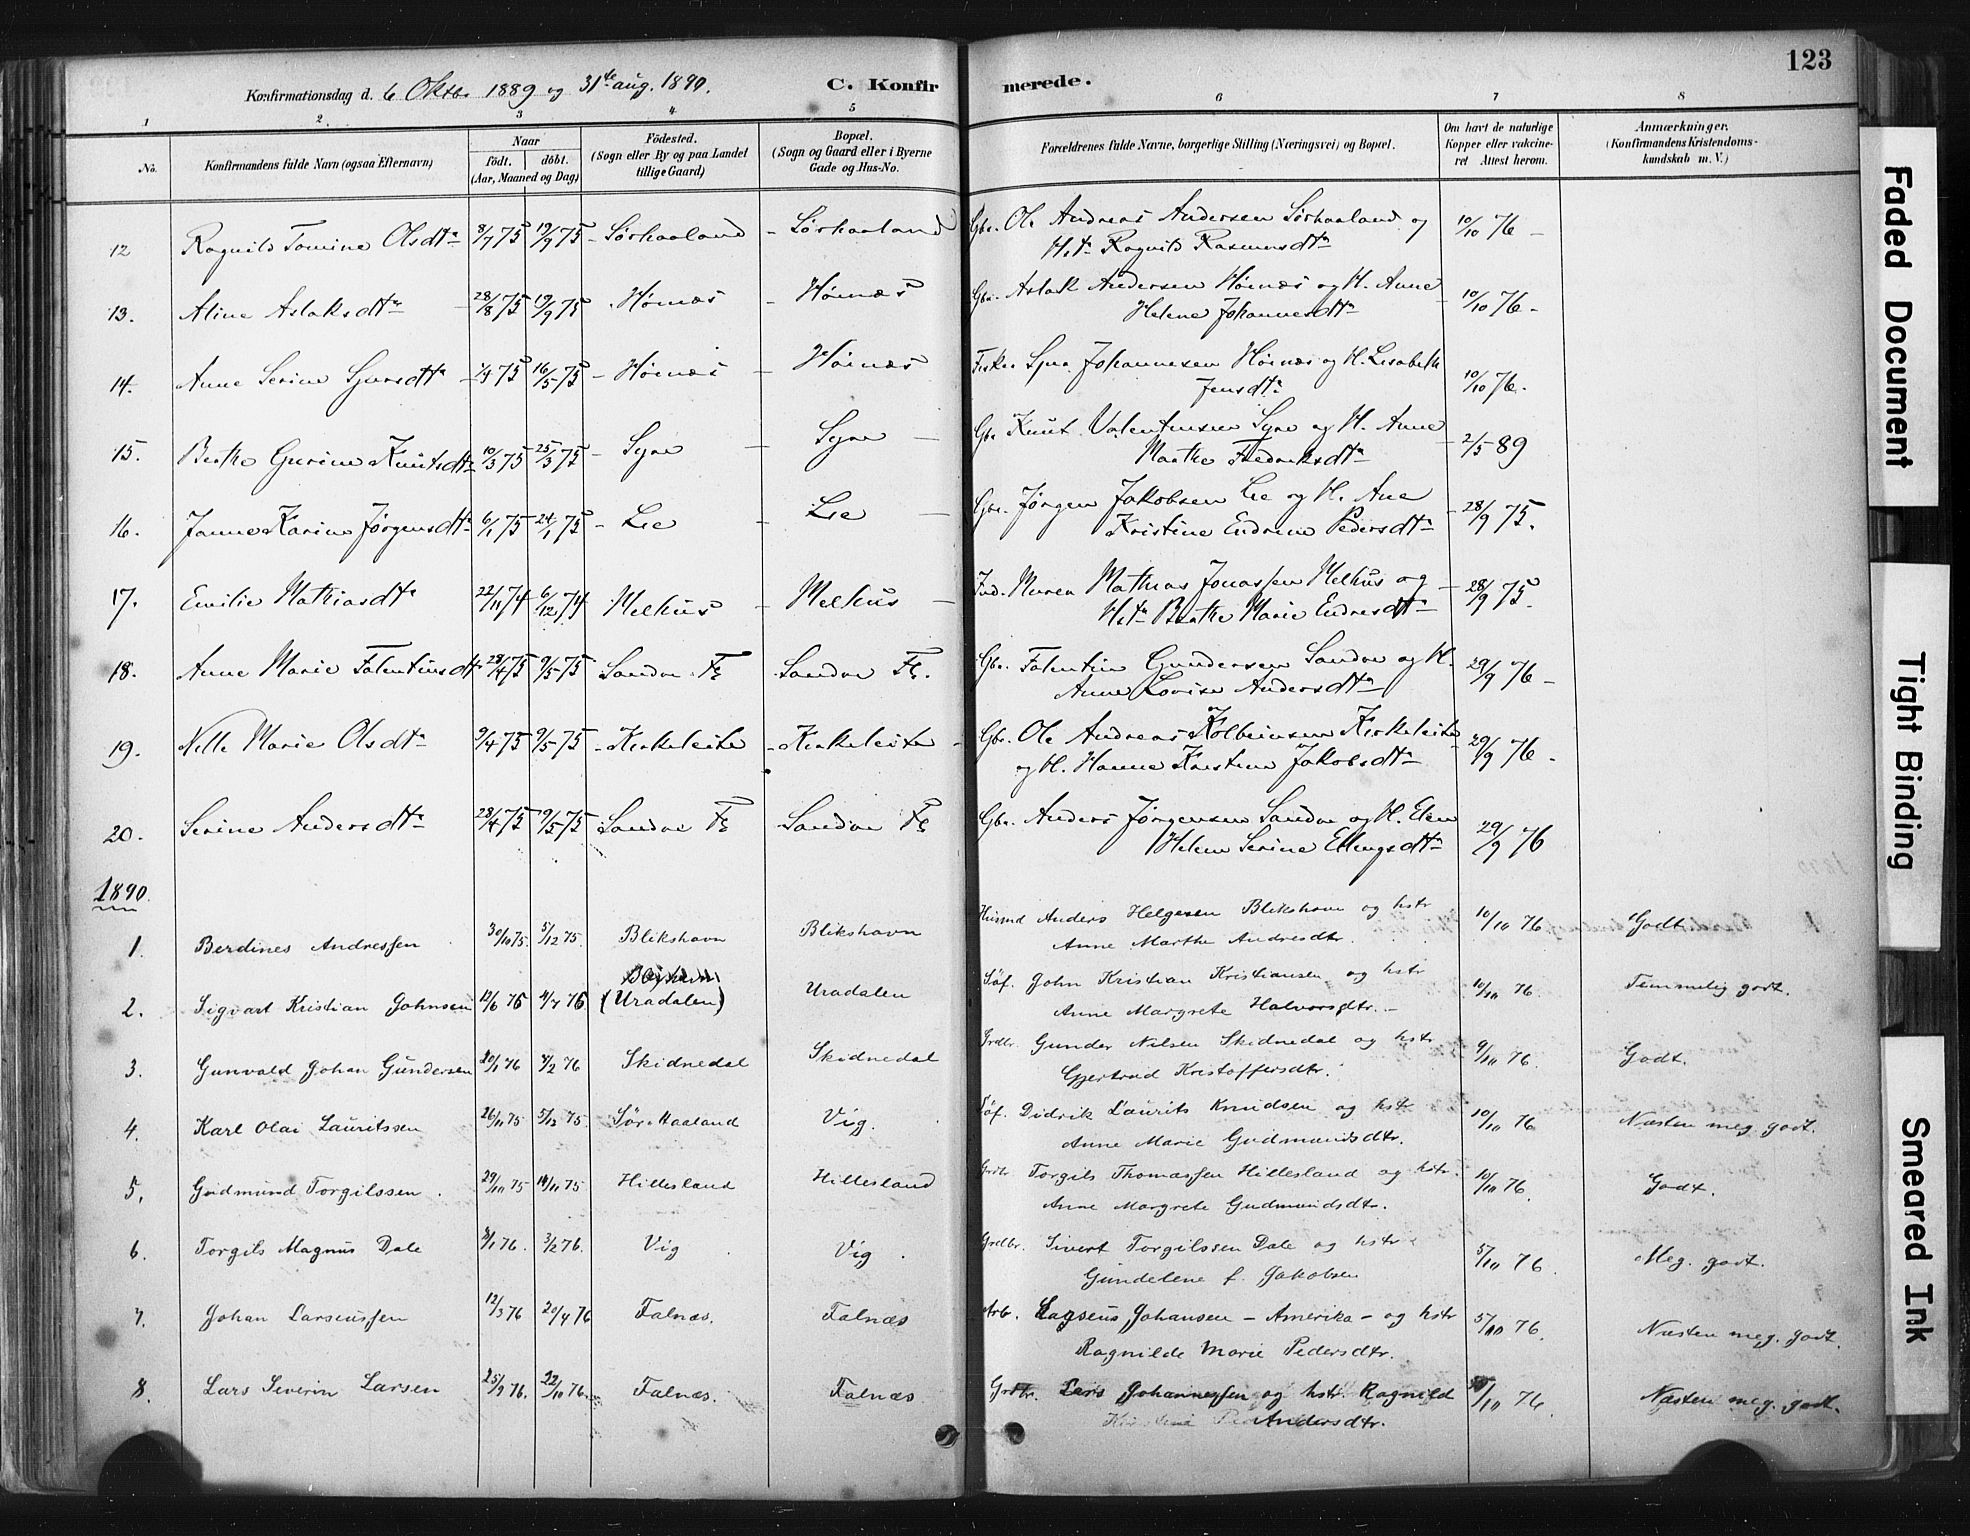 123
Konfirmationsdag d. 6 Oktbr 1889 og 31te aug. 1890.
C. Konfirmerede.
1 2. 3 4 5 6 7 8
No.
Konfirmandens fulde Navn (ogsaa Efternavn)
Naar
födt. döbt.
(Aar, Maaned og Dag)
Födested.
(Sogn eller By og paa Landet
tillige Gaard)
Bopæl.
(Sogn og Gaard eller i Byerne
Gade og Hus-No.
Forældrenes fulde Navne, borgerlige Stilling (Næringsvei) og Bopæl.
Om havt de naturlige
Kopper eller vakcine-
ret Attest herom.
Anmærkninger.
(Konfirmandens Kristendoms-
kundskab m. V.)
12 Ragnild Tomine Olsdtr 8/7 75 19/9 75 - Sørhaaland - Sørhaaland Gbr. Ole Andreas Andersen Sørhaaland og 10/10 76 -
H. Ragnild Rasmusdtr
13. Aline Aslaksdtr 28/8 75 19/9 75 Høinæs - Høinæs Gbr. Aslak Andersen Høinæs og H. Anne 10/10 76 -
Helene Johannesdtr
14. Anne Serine Sjursdtr 75 16/5 75 - Høinæs - Høinæs Fisker Johannesen Høinæs og H. Lisabeth 10/10 76.
Jensdtr
15. Berthe Gurine Knutsdtr 10/3 75 25/3 75 - Syre - Syre - Gbr Knut Valentinsen Syre og H. Anne 2/5 89
Marthe Fredriksdtr
16. Janne Karine Jørgensdtr 6/1 75 24/1 75 - Lie - Lie - Gbr. Jørgen Jakobsen Lie og H. Ane 28/9 75.
Kristine Endrine Pedersdtr
17. Emilie Mathiasdtr 22/11 74 6/12 74 Melhus - Melhus - Ind. Murer Mathias Jonassen Melhus og 28/9 75.
Berthe Marie Endresdtr
18. Anne Marie Falentinsdtr 28/4 75 9/5 75 Sandve - Sandve Gbr. Falentin Gundersen Sandve og H. 29/9 76 -
Anne Lovise Andersdtr
19. Nelle Marie Olsdtr 9/4 75 9/5 75 - Kirkeleite - Kirkeleite - Gbr. Ole Andreas Kolbeinsen Kirkeleite 29/9 76 -
og H. Hanne Kristine Jakobsdtr
20. Serine Andersdtr 28/4 75 9/5 75 Sandve Sandve Gbr. Anders Jørgensen Sandve og H. Elen 29/9 76
Helene Serine Ellingsdtr
1890.
1. Berdines Andressen 30/10 75. 5/12 75. Blikshavn Blikshavn Husmd Anders Helgesen Blikshavn og hstr 10/10 76 Godt.
Anne Marthe Andresdtr.
2. Sigvart Kristian Johnsen 12/6 76 4/7 76 (Uradalen) Uradalen Søf. John Kristian Kristiansen og hstr 10/10 76. Temmelig godt.
Anne Margrete Halvorsdtr. -
3. Gunvald Johan Gundersen 20/1 76 7/2 76 Skidnedal Skidnedal Grdbr. Gunder Nilsen Skidnedal og hstr 9/10 76. Godt.
Gjertrud Kristoffersdtr.
4. Karl Olai Lauritssen 26/11 75 5/12 75. Sør-Haaland Vig. Søf. Didrik Laurits Knudsen og hstr 10/10 76 Næsten meg. godt.
Anne Marie Gudmundsdtr.
5. Gudmund Torgilssen. 29/10 75 14/11 75 Hillesland Hillesland Grdbr. Torgils Thomassen Hillesland og hstr. 10/10 76. Godt.
Anne Margrete Gudmundsdtr.
6 Torgils Magnus Dale 8/1 76. 3/2 76. Vig Vig. Grdbr. Sivert Torgilssen Dale og hstr 5/10 76. Meg. godt.
Gundelene f. Jakobsen
7. Johan Larseussen 12/3 76 20/4 76 Falnæs. Falnæs Arb. Larseus Johansen - Amerika - og hstr 5/10 76. Næsten meg. godt.
Ragnilde Marie Pedersdtr.
8. Lars Severin Larsen 25/9 76. 22/10 76. Falnæs. Falnæs Grdbr. Lars Johannessen og hstr. Ragnild /10 76. Næsten meg. godt.
Andersdtr.
Faded Document
Tight Binding
Smeared Ink